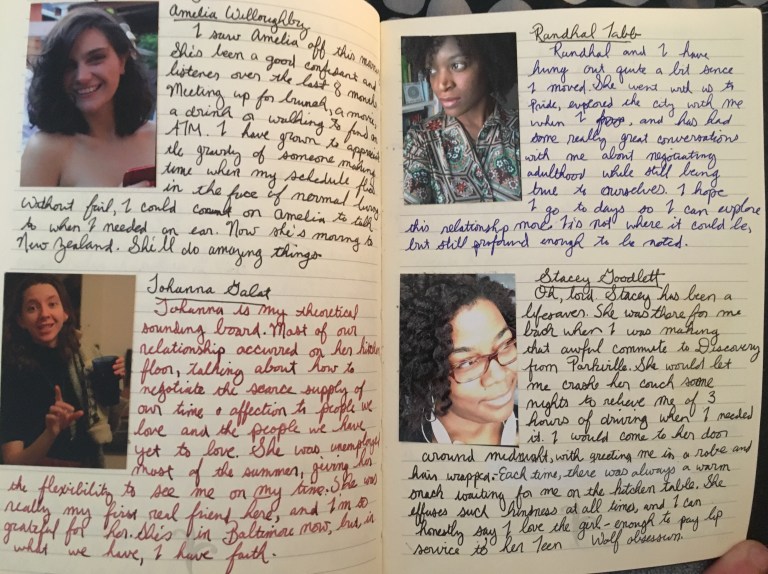 Amelia Willoughby
I saw Amelia off this
She's been a good confidant and
listener over the last 8 months.
Meeting up for brunch, a movie,
a drink or walking to find an
ATM. I have grown to appreciate
the gravity of someone making
time when my schedule
in the face of normal living
Without fail, I could count on Amelia to talk
to when I needed an ear. Now she's moving to
New Zealand. She'll do amazing things.
Johanna Galat
Johanna is my theoretical
sounding board. Most of our
relationship occurred on her kitchen
floor, talking about how to
negotiate the scarce supply of
our time & affection to people we
love and the people we have
yet to love. She was unemployed
most of the summer, giving her
the flexibility to see me on my time. She was
really my first real friend here, and I'm so
grateful for her. She's in Baltimore now, but in
what we have, I have faith.
Randhal Tabb
Randhal and I have
hung out quite a bit since
I moved. She went with us to
Pride, explored the city with me
when I and has had
some really great conversations
with me about negotiating
adulthood while still being
true to ourselves. I hope
I go to days so I can explore
this relationship more. It's not where it could be,
but still profound enough to be noted.
Stacey Goodlett
Oh, lord. Stacey has been a
lifesaver. She was there for me
back when I was making
that awful commute to Discovery
from Parkville. She would let
me crash her couch some
nights to relieve me of 3
hours of driving when I needed
it. I would come to her door
around midnight, with greeting me in a robe and
hair wrapped. Each time, there was always a warm
snack waiting for me on the kitchen table. She
effuses such kindness at all times, and I can
honestly say I love the girl - enough to pay lip
service to her Teen Wolf obsession.